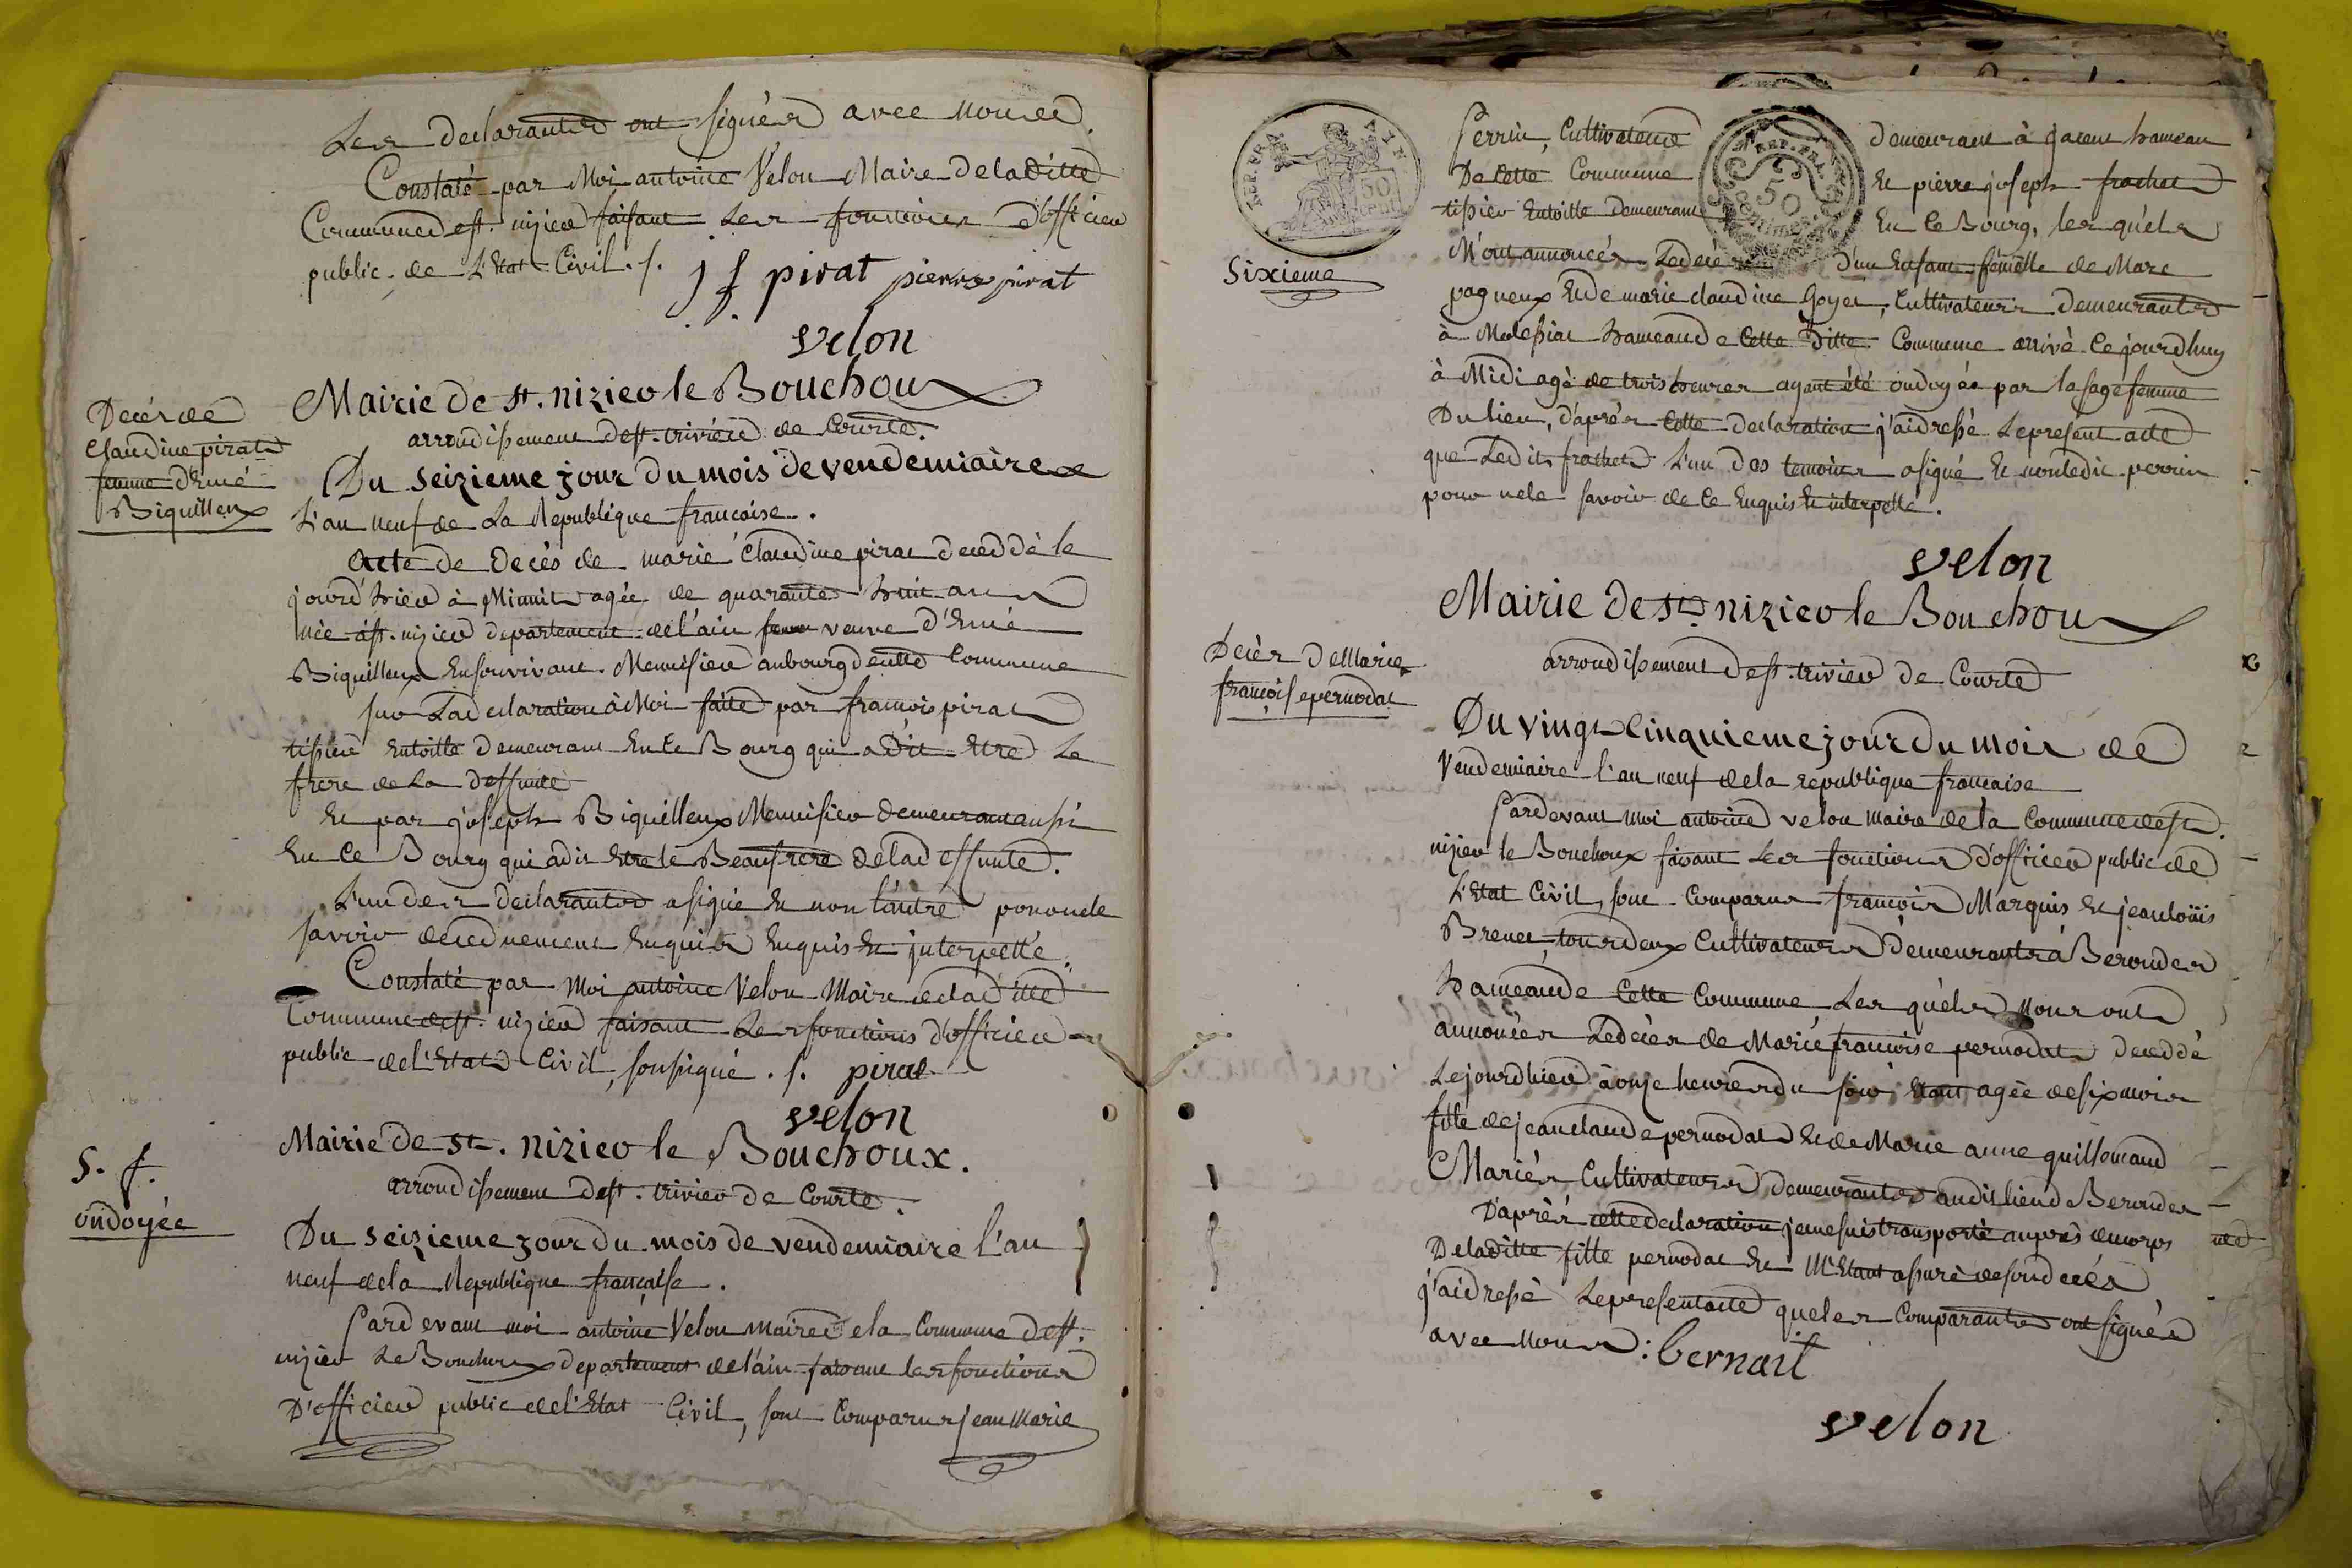 Les declarants ont signés avec nous.
Constaté par Moi antoine Velon Maire de laditte
Commune de st. nizier faisant les fonctions d'officier
public de L'Etat Civil. /.
j f pirat pierre pirat
velon
Decés de
Claudine pirat
femme d'Emé
Biquilleux
Mairie de st. nizier le Bouchoux
arrondissement de st. trivier de Courte.
Du seizieme jour du mois de vendemiaire
L'an neuf de La Republique francaise.
Acte de Decès de marie Claudine pirat deceddé le
jourd'hier à Minuit agée de quarante huit ans
née à st. nizier departement de l'ain veuve d'Emé
Biquilleux En son vivant Menuisier au bourg de cette Commune
sur La declaration à Moi faitte par francois pirat
tissier Entoille demeurant En ce Bourg qui a Dit Etre Le
frere de La deffunte
Et par joseph Biquilleux Menuisier demeurant aussi
En ce Bourg qui a dit Etre le Beaufrere de la deffunte.
L'un des declarants a signé Et non l'autre pour ne le
savoir de ce duement Enquis Enquis Et interpellé.
Constaté par Moi antoine Velon Maire de laditte
Commune de st. nizier faisant Les fonctions d'officier
public de l'Etat Civil, soussigné. /. pirat
velon
S. f.
ondoyée
Mairie de st. nizier le Bouchoux.
arrondissement de st. trivier de Courte.
Du seizieme jour du mois de vendemiaire l'an
neuf de la Republique francaise.
Pardevant moi antoine Velon maire de la Commune de st.
nizier Le Bouchoux departement de l'ain faisant les fonctions
D'officier public de l'Etat Civil, sont Comparus jean Marie
REP. FRA.
50
CENT
REP. FRA.
50
Sixieme
Perrin, Cultivateur demeurant à hameau
De Cette Commune Et pierre joseph frachet
tissier Entoille demeurant En ce Bourg, les quels
M'ont annoncés Le decés d'un Enfant femelle de Marc
pagneux Et de marie claudine Goyet, Cultivateurs demeurants
à Molissiat hameau de Cette ditte Commune arrivé Cejourdhuy
à Midi agé de trois heures ayant été ondoyée par la sage femme
Du lieu, d'après Cette declaration j'ai dressé Le present acte
que Ledit frachet L'un des temoins a signé Et non ledit perrin
pour ne le savoir de Ce Enquis Et interpellé.
velon
Mairie de st. nizier le Bouchoux
arrondissement de st. trivier de Courte
Decès De Marie
françoise pernodat
Du vingt cinquieme jour du mois de
Vendemiaire l'an neuf de la republique francaise
Pardevant moi antoine velon maire de la Commune de st.
nizier le Bouchoux faisant Les fonctions d'officier public de
L'Etat Civil, sont Comparus francois Marquis Et jean loüis
Brenet, tous deux Cultivateurs demeurants à Berondes
hameau de Cette Commune, Les quels Nous ont
annoncés Le decés de Marie francoise pernodat deceddé
Le jourdhier à onze heures du soir Etant agée de six mois
fille de jean claude pernodat Et de Marie anne guillemaud
Mariés Cultivateurs demeurants audit lieu de Berondes
D'après cette declaration je me suis transporté auprès du corps
De laditte fille pernodat Et M'Etant assuré de son decés
j'ai dressé Le present acte que les Comparants ont signés
avec Nous :. bernait
velon